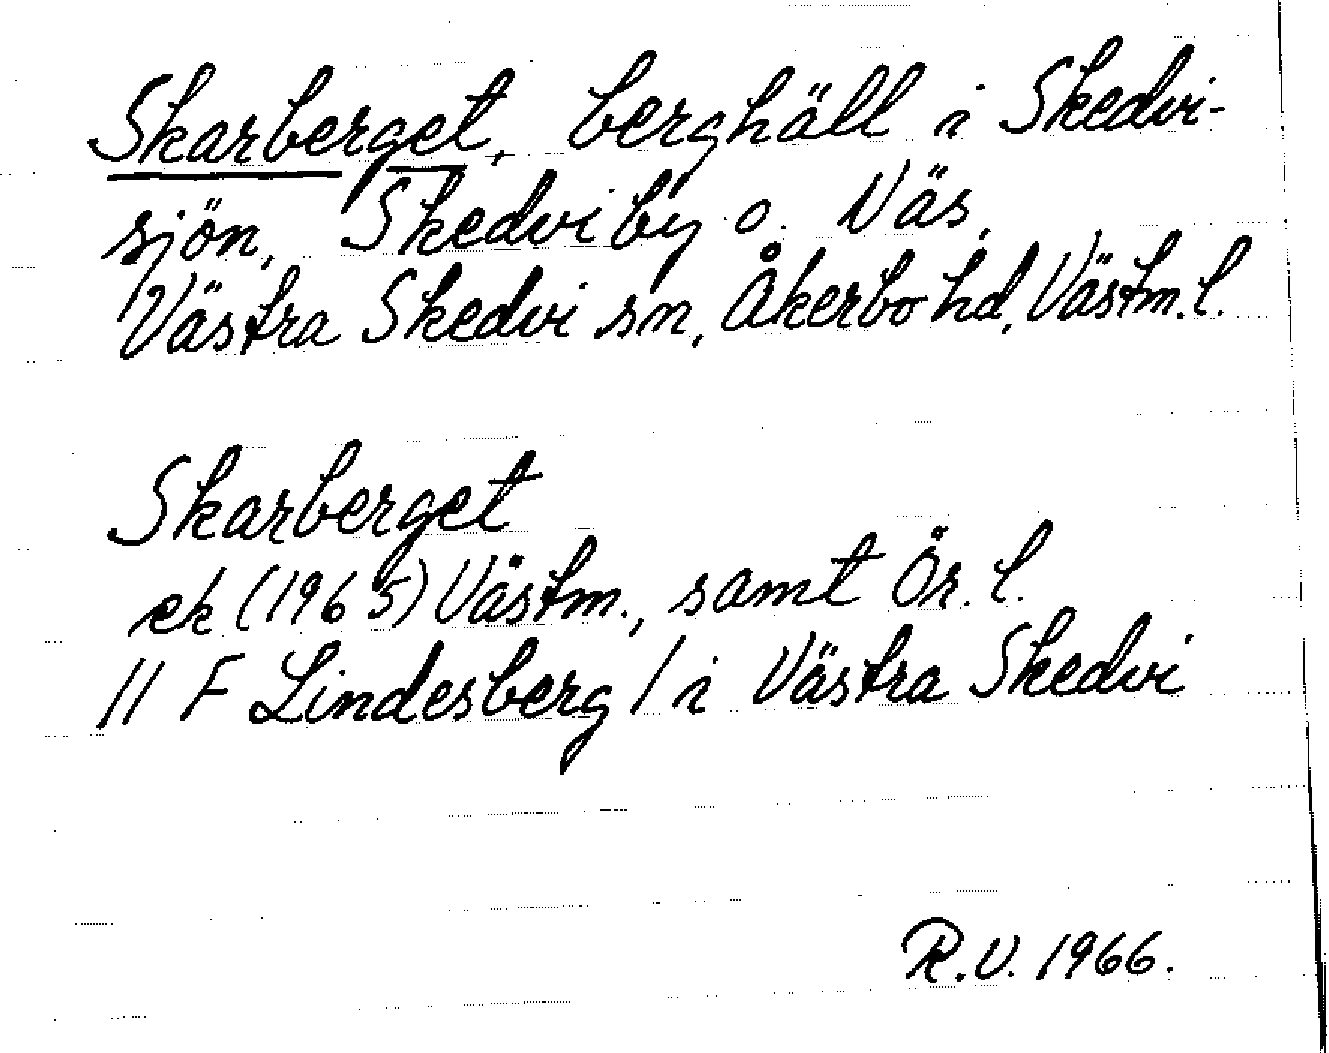 Skarberget, berghäll i Skedvi-
sjön, Skedviby o. Näs,
Västra Skedvi sn, Åkerbo hd, Västm. l.
Skarberget
ek (1965) Västm., samt Ör. l.
11 F Lindesberg / i Västra Skedvi
R.V. 1966.